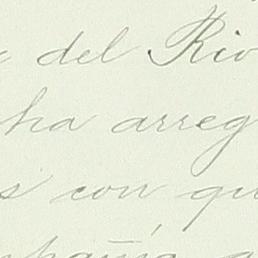 e del Rio
ha arreg
s con qu